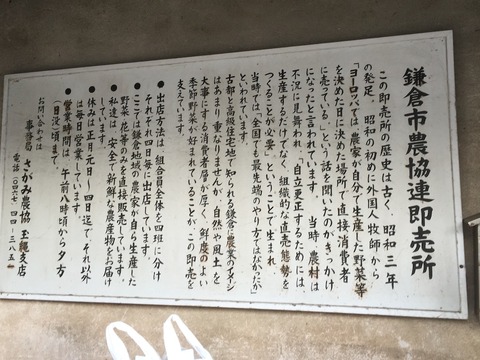 鎌倉市農協連即売所
この即売所の歴史は古く、昭和三年
の発足。昭和の初めに外国人牧師から
「ヨーロッパでは農家が自分で生産した野菜等
を決めた日に決めた場所で直接消費者
に売っている」という話を聞いたのがきっかけ
になったと言われています。当時、農村は
不況に見舞われ、「自立更正するためには、
生産するだけでなく、組織的な直売態勢を
つくることが必要」ということで生まれ、
当時では、「全国でも最先端のやり方ではなかったか」
といわれています。
古都と高級住宅地で知られる鎌倉に農業のイメージ
はあまり重なりませんが、自然や風土を
大事にする消費者層が厚く、鮮度のよい
季節野菜が好まれていることが、この即売を
支えています。
●出店方法は、組合員全体を四班に分け
それぞれ四日毎に出店しています。
●ここでは鎌倉地域の農家が自ら生産した
野菜・花等のみを直接販売しています。
私達は、安全で新鮮な農産物をお届け
しています。
●休みは正月元日〜四日迄で、それ以外
は毎日営業しています。
●営業時間は、午前八時頃から夕方
(日没)頃まで
お問い合わせは
事務局 さがみ農協 玉縄支店
電話 〇四六七 四四-三八五一